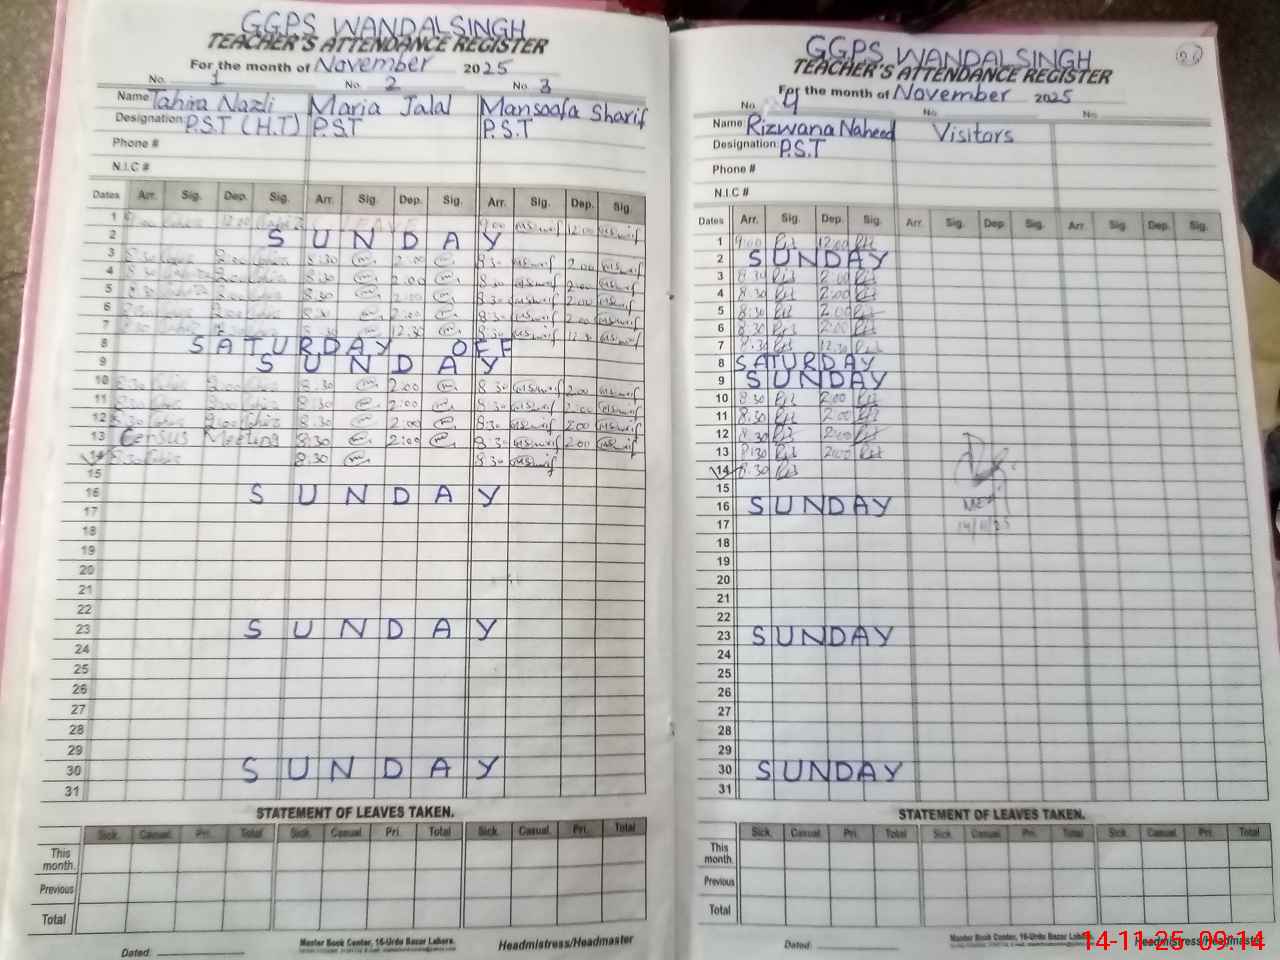 GGPS WANDALSINGH
TEACHER'S ATTENDANCE REGISTER
For the month of November 2025
No. 1 No. 2 No. 3
Name Tahira Nazli Maria Jalal Mansoofa Sharif
Designation: P.S.T (H.T) P.S.T P.S.T
Phone #
N.I.C #
Dates Arr. Sig. Dep. Sig. Arr. Sig. Dep. Sig. Arr. Sig. Dep. Sig.
1 9:00 12:00 LEAVE 9:00 12:00
2 SUNDAY
3 8:30 2:00 8:30 2:00 8:30 2:00
4 8:30 2:00 8:30 2:00 8:30 2:00
5 8:30 2:00 8:30 2:00 8:30 2:00
6 8:30 2:00 8:30 2:00 8:30 2:00
7 8:30 12:30 8:30 12:30 8:30 12:30
8 SATURDAY OFF
9 SUNDAY
10 8:30 2:00 8:30 2:00 8:30 2:00
11 8:30 2:00 8:30 2:00 8:30 2:00
12 8:30 2:00 8:30 2:00 8:30 2:00
13 Census Meeting 8:30 2:00 8:30 2:00
14 8:30 8:30 8:30
15
16 SUNDAY
17
18
19
20
21
22
23 SUNDAY
24
25
26
27
28
29
30 SUNDAY
31
STATEMENT OF LEAVES TAKEN.
Sick. Casual. Pri. Total Sick. Casual. Pri. Total Sick. Casual. Pri. Total
This month.
Previous
Total
Dated:
Master Book Center, 16-Urdu Bazar Lahore.
Headmistress/Headmaster
26
GGPS WANDALSINGH
TEACHER'S ATTENDANCE REGISTER
For the month of November 2025
No. 4 No. No.
Name Rizwana Naheed Visitors
Designation: P.S.T
Phone #
N.I.C #
Dates Arr. Sig. Dep. Sig. Arr. Sig. Dep. Sig. Arr. Sig. Dep. Sig.
1 9:00 12:00
2 SUNDAY
3 8:30 2:00
4 8:30 2:00
5 8:30 2:00
6 8:30 2:00
7 8:30 12:30
8 SATURDAY
9 SUNDAY
10 8:30 2:00
11 8:30 2:00
12 8:30 2:00
13 8:30 2:00
14 8:30
15
16 SUNDAY
17 14/11/25
18
19
20
21
22
23 SUNDAY
24
25
26
27
28
29
30 SUNDAY
31
STATEMENT OF LEAVES TAKEN.
Sick. Casual. Pri. Total Sick. Casual. Pri. Total Sick. Casual. Pri. Total
This month.
Previous
Total
Dated:
Master Book Center, 16-Urdu Bazar Lahore.
Headmistress/Headmaster
14-11-25 09:14